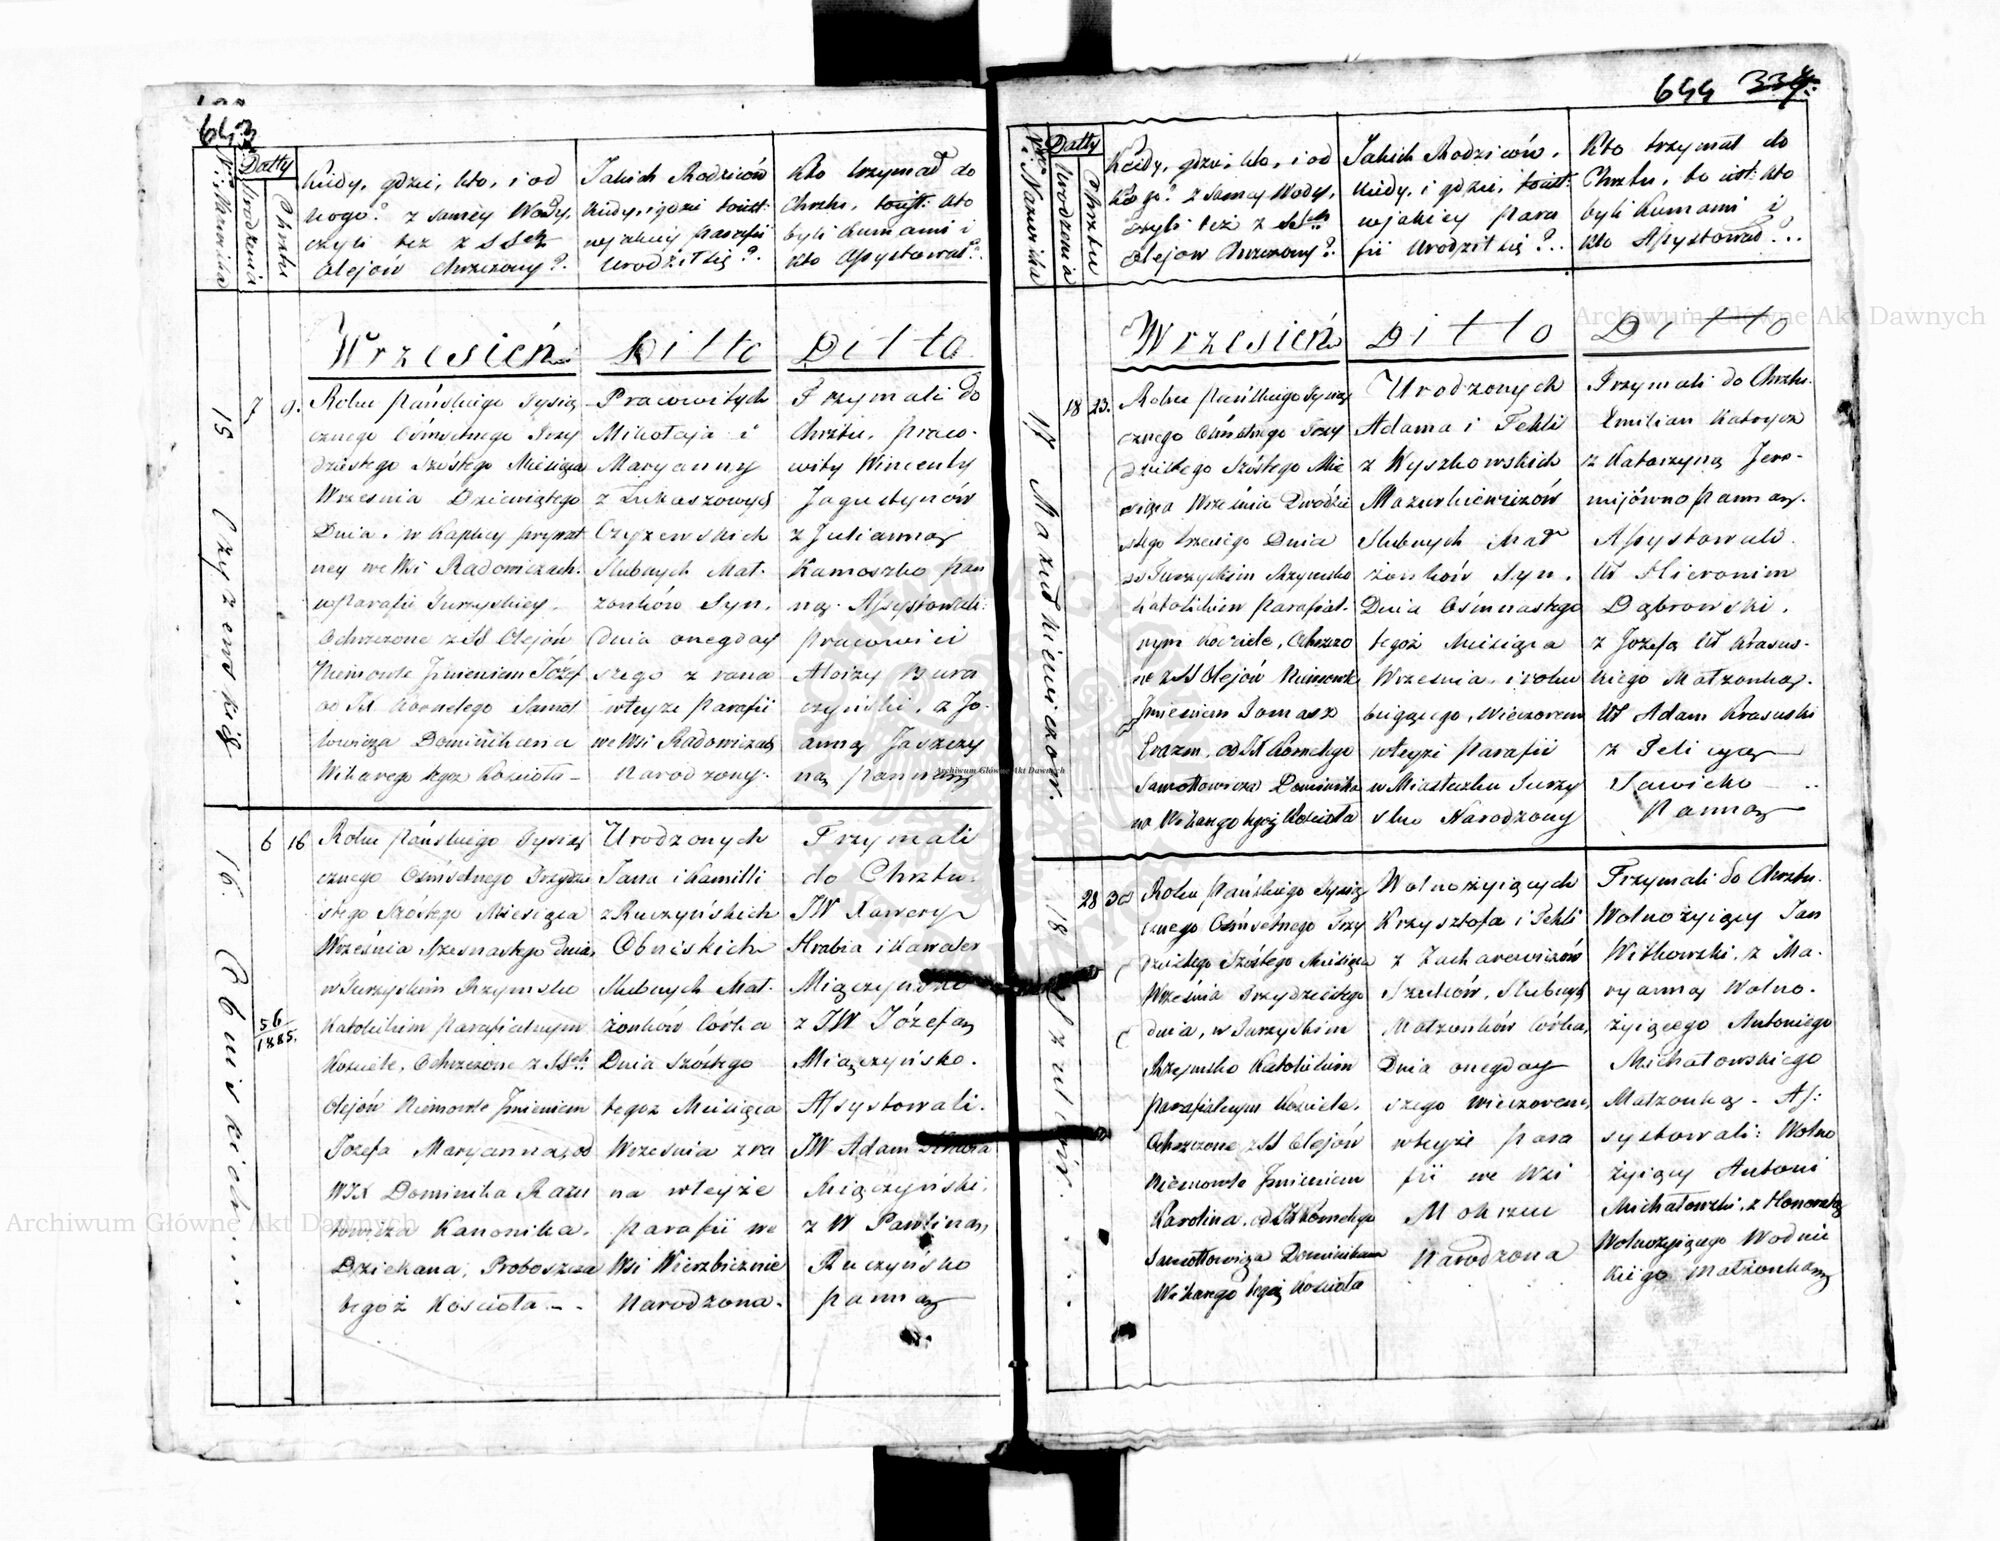 643
Datty
Urodzenia
Chrztu
Kiedy, gdzie, kto, i od
kogo? z samey Wody,
czyli też z SSch
Olejów Chrzczony?
Jakich Rodziców
kiedy, i gdzie toiest:
w jakiey Parafii
Urodził się?
Kto trzymał do
Chrztu, toist: kto
byli Kumami i
kto Assystował?
Wrzesień Ditto Ditto
15 Czyżewskich
7 9.
Roku Pańskiego Tysią
cznego Ośmsetnego Trzy
dziestego Szóstego Miesiąca
Września Dziewiątego
Dnia, w Kaplicy prywat
ney we Wsi Radowiczach
w Parafii Turzyskiey,
Ochrzczone z SS Olejów
Niemowle Jmieniem Józef
od JX Kornelego Samot
łowicza Dominikana
Wikarego tegoż Kościoła –
Pracowitych
Mikołaja i
Maryanny
z Łukaszowych
Czyżewskich
Slubnych Mał-
żonków Syn,
dnia onegday
szego z rana
w teyże Parafii
we Wsi Radowiczach
Narodzony.
Trzymali do
Chrztu, Praco-
wity Wincenty
Jagustynów
z Julianną
Kamoszko Pan
ną. Assystowali:
Pracowici
Aloizy Bura
czyński, z Jo-
anną Jaszczy
ną Panną
16. Obniskich....
6 16
56
1885.
Roku Pańskiego Tysią
cznego Ośmsetnego Trzydzie
stego Szóstego Miesiąca
Września Szesnastego dnia,
w Turzyskim Rzymsko
Katolickim Parafialnym
Kościele, Ochrzczone z SSch
Olejów Niemowle Jmieniem
Józefa Maryanna, od
WJX Dominika Razu
towicza Kanonika,
Dziekana, Proboszcza
tegoż Kościoła – .
Urodzonych
Jana i Kamilli
z Ruczyńskich
Obniskich
Slubnych Mał-
żonków Córka
Dnia Szóstego
tegoż Miesiąca
Września z ra
na w teyże
Parafii we
Wsi Wierzbicznie
Narodzona.
Trzymali
do Chrztu.
JW Xawery
Hrabia i Kawaler
Miączyński
z JW Józefą
Miączyńsko.
Assystowali.
JW Adam
Miączyński,
z W Pauliną
Ruczyńsko
Panną
644 337.
Nr. i Nazwiska
Datty
Urodzenia
Chrztu
Kiedy, gdzie, kto, i od
kogo? z samey Wody,
czyli też z SSch
Olejow Chrzczony?
Jakich Rodziców,
kiedy, i gdzie, toiest:
w jakiey Para
fii Urodził się?..
Kto trzymał do
Chrztu, to iest: kto
byli Kumami i
kto Assystował?..
Wrzesień Ditto Ditto
17 Mazurkiewiczów.
18 23.
Roku Pańskiego Tysią
cznego Ośmsetnego Trzy
dziestego Szóstego Mie
siąca Września Dwódzie
stego trzeciego Dnia
w Turzyskim Rzymsko
Katolickim Parafial-
nym Kościele, Ochrzczo
ne z SS Olejów Niemowle
Jmieniem Tomasz
Erazm, od JX Kornelego
Samotłowicza Dominika
na Wikarego tegoż Kościoła
Urodzonych
Adama i Tekli
z Wyszkowskich
Mazurkiewiczów
Slubnych Mał
żonków Syn,
Dnia Ośmnastego
tegoż Miesiąca
Września, i roku
bieżącego, Wieczorem
w teyże Parafii
w Miasteczku Turzy
sku Narodzony
Trzymali do Chrztu.
Emilian Katorycz
z Katarzyną Jero-
mijówno Panną.
Assystowali.
W Hieronim
Dąbrowski,
z Jozefą W Krasus-
kiego Małżonką.
W Adam Krasuski
z Felicyą
Sawicko ..
Panną
18 Szuków.
28 30
Roku Pańskiego Tysią
cznego Ośmsetnego Trzy
dziestego Szóstego Miesiąca
Września Trzydziestego
dnia, w Turzyskim
Rzymsko Katolickim
Parafialnym Kościele,
Ochrzczone z SS Olejów
Niemowle Jmieniem
Karolina, od JX Kornelego
Samotłowicza Dominikana
Wikarego tegoż Kościoła
Wolnożyiących
Krzysztofa i Tekli
z Zacharewiczów
Szuków, Slubnych
Małżonków Córka,
Dnia onegday
szego wieczorem,
w teyże Para
fii we Wsi
Mokrcu
Narodzona
Trzymali do Chrztu.
Wolnożyiący Jan
Witkowski, z Ma-
ryanną Wolno-
żyiącego Antoniego
Michałowskiego
Małżonką. As-
systowali: Wolno
żyiący Antoni
Michałowski, z Honoratą
Wolnożyiącego Wodnic
kiego Małżonką
Archiwum Główne Akt Dawnych
Archiwum Główne Akt Dawnych
Archiwum Główne Akt Dawnych